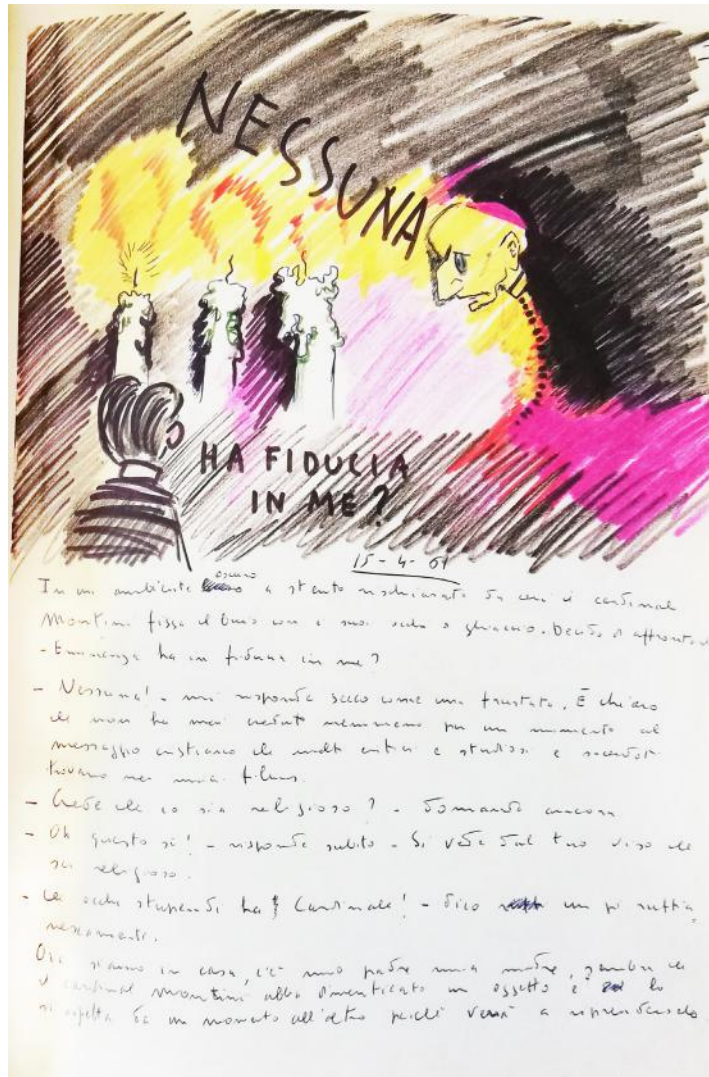 NESSUNA
HA FIDUCIA
IN ME?
15-4-61
In un ambiente oscuro a stento rischiarato da ceri il cardinal
Montini fissa il buio con i suoi occhi di ghiaccio. Decido di affrontarlo
- Eminenza ha in fiducia in me?
- Nessuna! - mi risponde secco come una frustata. È chiaro
che non ha mai creduto nemmeno per un momento al
messaggio cristiano che molti critici e studiosi e sacerdoti
trovano nei miei films.
- Crede che io sia religioso? - domando ancora
- Oh questo sì! - risponde subito - Si vede dal tuo viso che
sei religioso.
- Che occhi stupendi ha Cardinale! - dico un po' ruffia
nescamente.
Ora siamo in casa, c'è mio padre mia madre, sembra che
il cardinal Montini abbia dimenticato un oggetto e lo
si aspetta da un momento all'altro perché verrà a riprenderselo